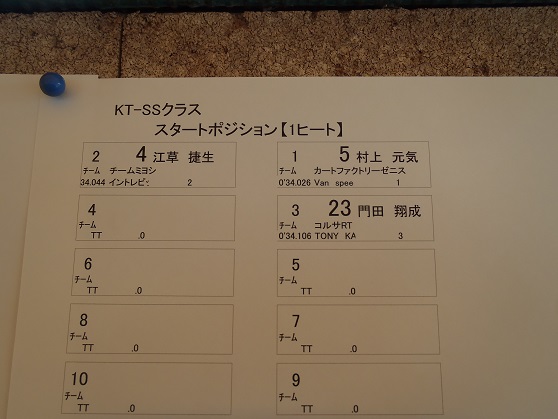 KT-SSクラス
スタートポジション【1ヒート】
2 4 江草 捷生
チーム チームミヨシ
34.044 イントレピッ 2
1 5 村上 元気
チーム カートファクトリーゼニス
0'34.026 Van spee 1
4
チーム
TT .0
3 23 門田 翔成
チーム コルサRT
0'34.106 TONY KA 3
6
チーム
TT .0
5
チーム
TT .0
8
チーム
TT .0
7
チーム
TT .0
10
チーム
TT .0
9
チーム
TT .0